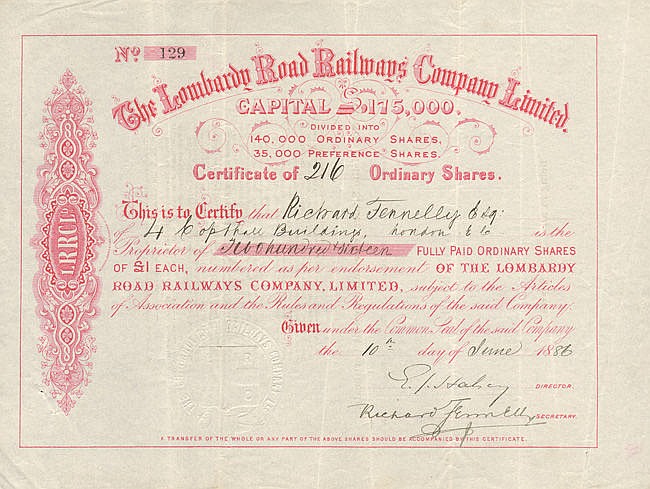 No. 129
The Lombardy Road Railways Company Limited.
CAPITAL £175,000.
DIVIDED INTO
140,000 ORDINARY SHARES,
35,000 PREFERENCE SHARES.
Certificate of 216 Ordinary Shares.
This is to Certify that Richard Fennelly Esq.
of 4 Copthall Buildings, London E.C. is the
Proprietor of Two hundred & sixteen FULLY PAID ORDINARY SHARES
OF £1 EACH, numbered as per endorsement OF THE LOMBARDY
ROAD RAILWAYS COMPANY, LIMITED, subject to the Articles
of Association and the Rules and Regulations of the said Company.
Given under the Common Seal of the said Company
the 10th day of June 1886
DIRECTOR.
Richard Fennelly SECRETARY.
A TRANSFER OF THE WHOLE OR ANY PART OF THE ABOVE SHARES SHOULD BE ACCOMPANIED BY THIS CERTIFICATE.